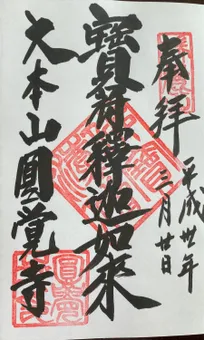 奉拜
平成卅年
三月廿日
寶冠釋迦如來
大本山圓覺寺